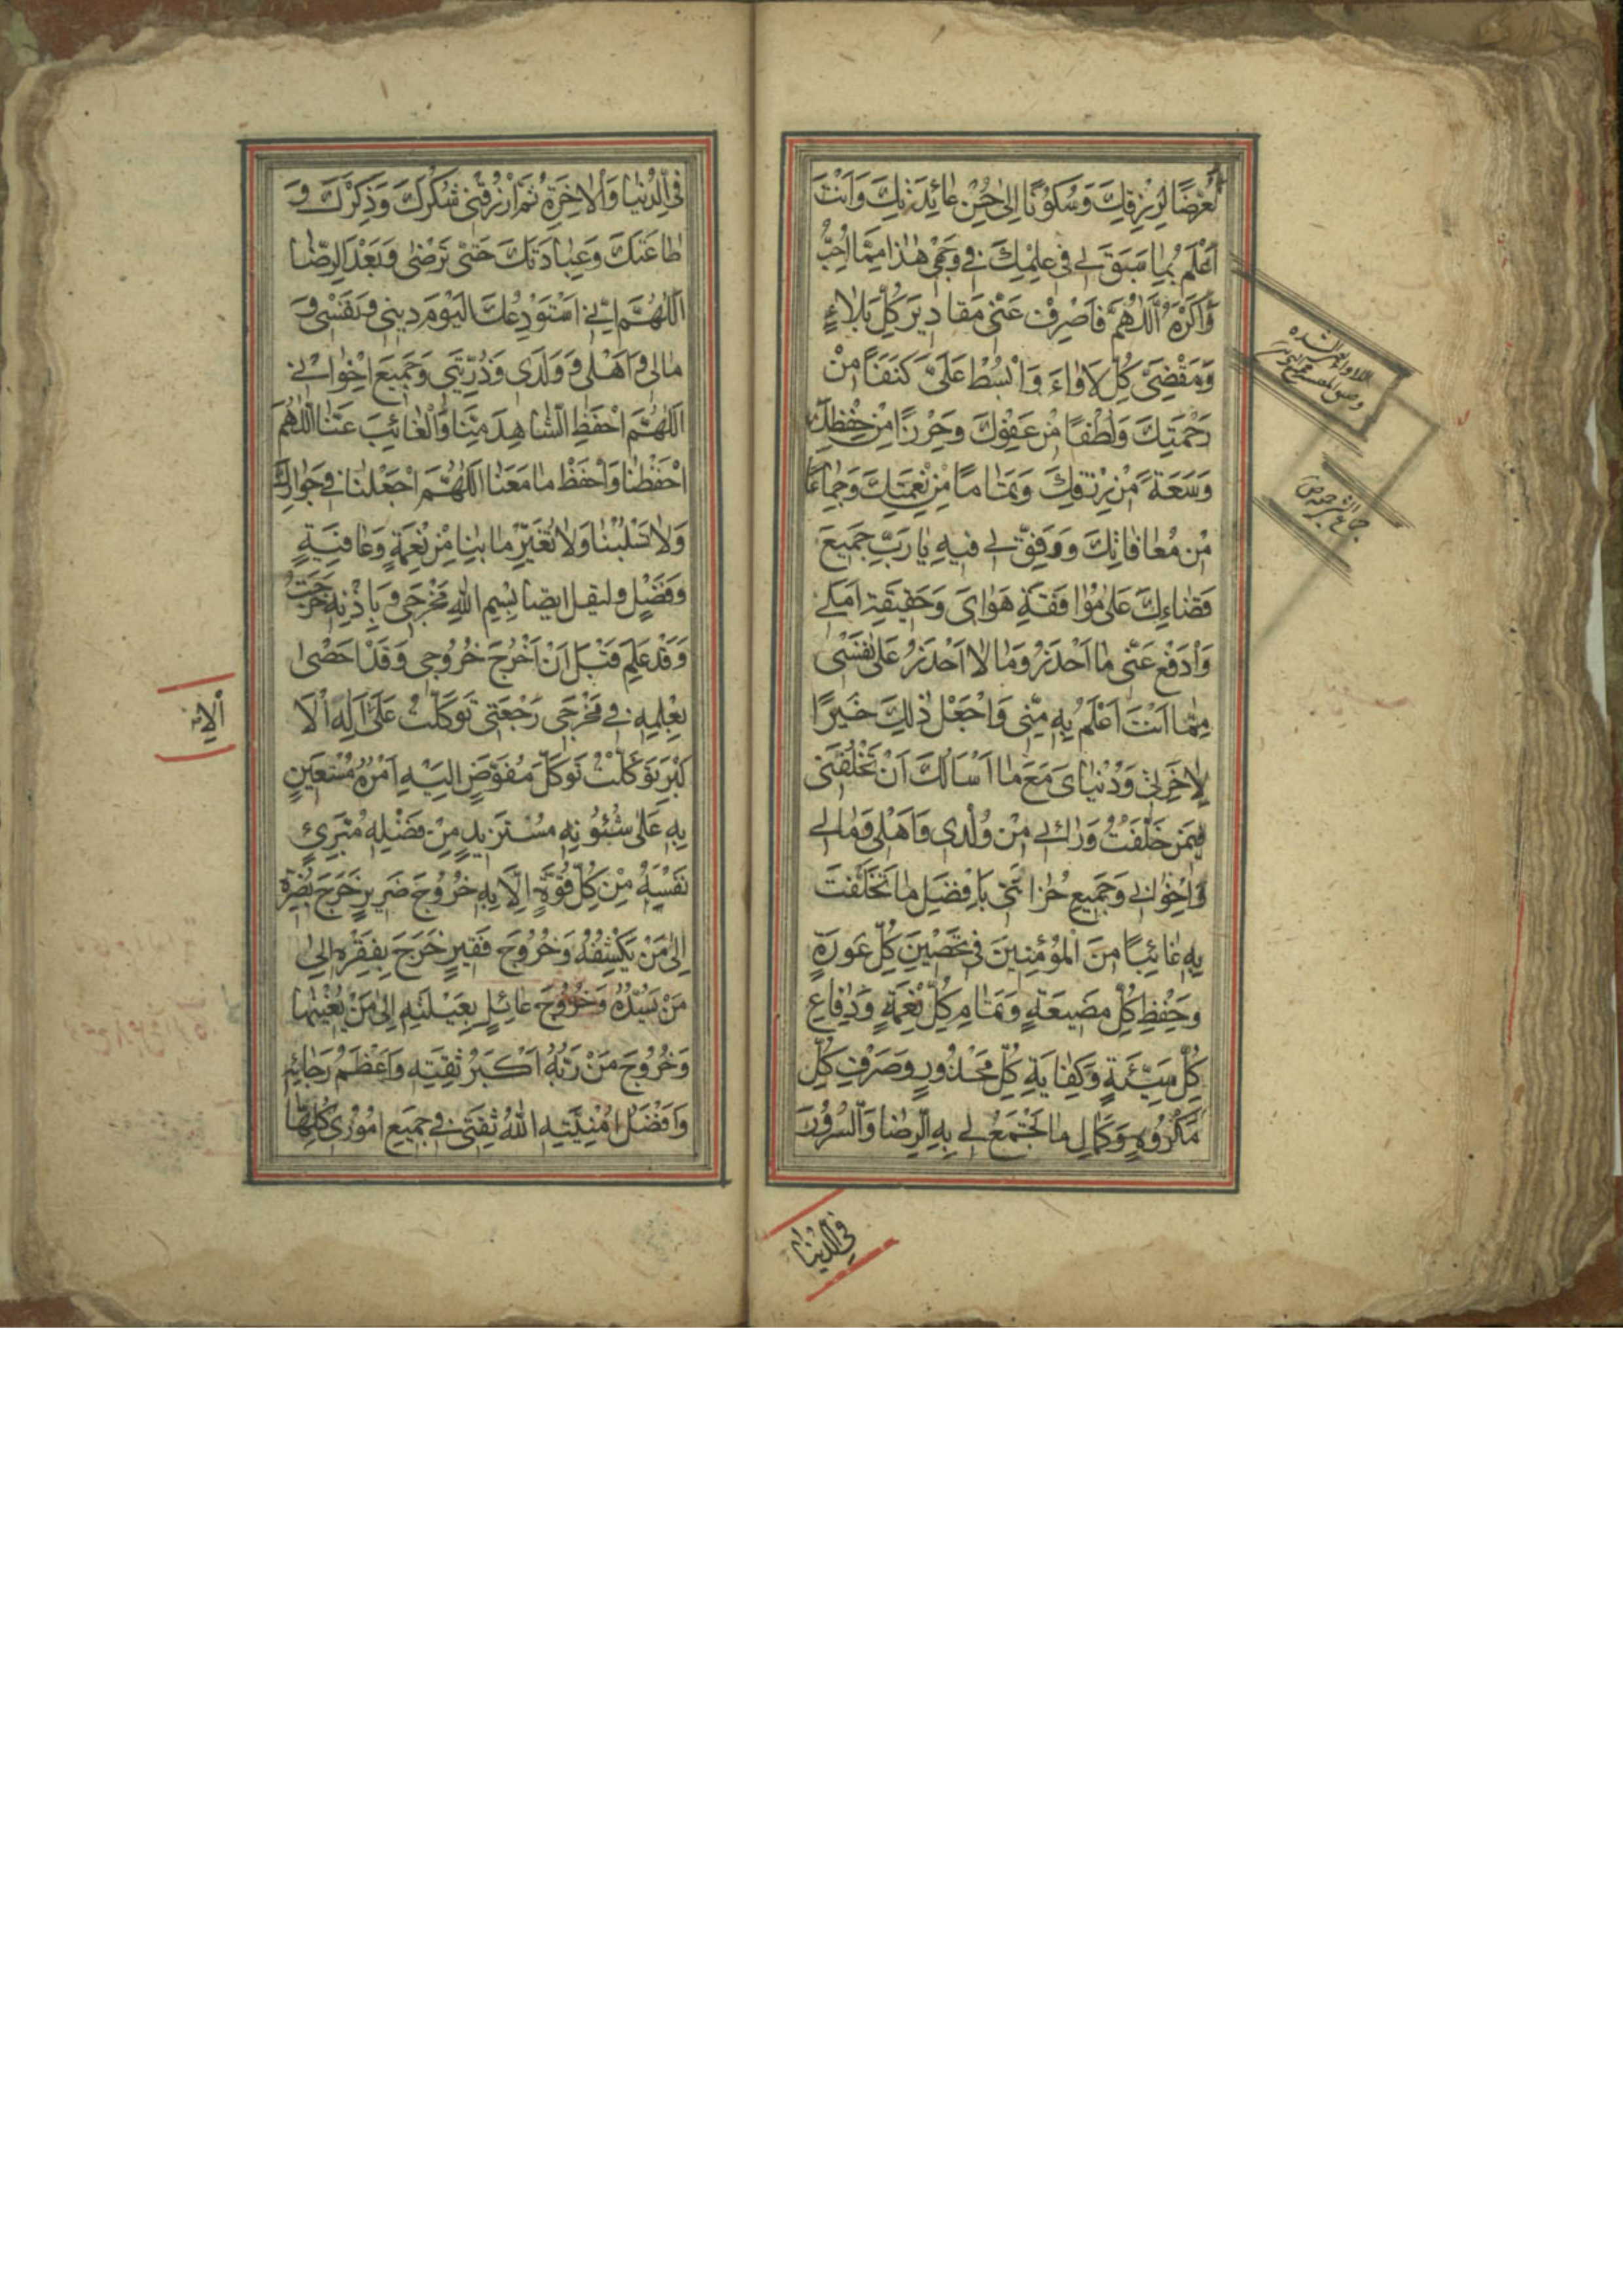 تَعَرُّضًا لِرِزْقِكَ وَسُكُونًا اِلىٰ حُسْنِ عٰائِدَتِكَ وَاَنْتَ
اَعْلَمُ بِمٰا سَبَقَ لي فى عِلْمِكَ في وَجْهى هٰذٰا مِمّٰا اُحِبُّ
وَاَكْرَهُ اَللّٰهُمَّ فَاصْرِفْ عَنّى مَقٰاديرَ كُلِّ بَلٰاءٍ
وَمَقْضِىَّ كُلِّ لَاْوٰاءَ وَابْسُطْ عَلَىَّ كَنَفًا مِنْ
رَحْمَتِكَ وَلُطْفًا مِنْ عَفْوِكَ وَحِرْزًا مِنْ حِفْظِكَ
وَسَعَةً مِنْ رِزْقِكَ وَتَمٰامًا مِنْ نِعْمَتِكَ وَجِمٰاعًا
مِنْ مُعٰافٰاتِكَ وَوَفِّقْ لي فيهِ يٰا رَبِّ جَميعَ
قَضٰاءِكَ عَلىٰ مُوٰافَقَةِ هَوٰاىَ وَحَقيقَةِ اَمَلي
وَادْفَعْ عَنّى مٰا اَحْذَرُ وَمٰا لٰا اَحْذَرُ عَلىٰ نَفْسى
مِمّٰا اَنْتَ اَعْلَمُ بِهِ مِنّى وَاجْعَلْ ذٰلِكَ خَيْرًا
لِاٰخِرَتى وَدُنْيٰاىَ مَعَ مٰا اَسْاَلُكَ اَنْ تَخْلُفَنى
فيمَنْ خَلَّفْتُ وَرٰائي مِنْ وُلْدى وَاَهْلى وَمٰالي
وَاِخْوٰانى وَجَميعِ حُزٰانَتى بِاَفْضَلِ مٰا تَخَلَّفْتَ
بِهِ غٰائِبًا مِنَ الْمُؤْمِنينَ فى تَحْصينِ كُلِّ عَوْرَةٍ
وَحِفْظِ كُلِّ مَضيعَةٍ وَتَمٰامِ كُلِّ نِعْمَةٍ وَدِفٰاعِ
كُلِّ سَيِّئَةٍ وَكِفٰايَةِ كُلِّ مَحْذُورٍ وَصَرْفِ كُلِّ
مَكْرُوهٍ وَكَمٰالِ مٰا تَجْمَعُ لي بِهِ الرِّضٰا وَالسُّرُورَ
فى الدُّنيٰا
فى الدُّنْيٰا وَالْاٰخِرَةِ ثُمَّ ارْزُقْنى شُكْرَكَ وَذِكْرَكَ وَ
طٰاعَتَكَ وَعِبٰادَتَكَ حَتّىٰ تَرْضىٰ وَبَعْدَ الرِّضٰا
اَللّٰهُمَّ اِنّي اَسْتَوْدِعُكَ الْيَوْمَ دينى وَنَفْسى وَ
مٰالى وَاَهْلى وَوَلَدى وَذُرِّيَّتى وَجَميعَ اِخْوٰاني
اَللّٰهُمَّ احْفَظِ الشّٰاهِدَ مِنّٰا وَالْغٰائِبَ عَنّٰا اَللّٰهُمَّ
احْفَظْنٰا وَاحْفَظْ مٰا مَعَنٰا اَللّٰهُمَّ اجْعَلْنٰا في جِوٰارِكَ
وَلٰا تَسْلُبْنٰا وَلٰا تُغَيِّرْ مٰا بِنٰا مِنْ نِعْمَةٍ وَعٰافِيَةٍ
وَفَضْلٍ وليقل ايضا بِسْمِ اللّٰهِ مَخْرَجى وَبِاِذْنِهِ خَرَجْتُ
وَقَدْ عَلِمَ قَبْلَ اَنْ اَخْرُجَ خُرُوجى وَقَدْ اَحْصىٰ
بِعِلْمِهِ في مَخْرَجى رَجْعَتى تَوَكَّلْتُ عَلَى الْاِلٰهِ الْاَ
كْبَرِ تَوَكَّلْتُ تَوَكُّلَ مُفَوِّضٍ اِلَيْهِ اَمْرَهُ مُسْتَعينٍ
بِهِ عَلىٰ شُئُونِهِ مُسْتَزيدٍ مِنْ فَضْلِهِ مُتَبَرِّئٍ
نَفْسَهُ مِنْ كُلِّ قُوَّةٍ اِلّٰا بِهِ خُرُوجَ ضَريرٍ خَرَجَ بِضُرِّهِ
اِلىٰ مَنْ يَكْشِفُهُ وَخُرُوجَ فَقيرٍ خَرَجَ بِفَقْرِهِ اِلىٰ
مَنْ يَسُدُّهُ وَخُرُوجَ عٰائِلٍ بِعَيْلَتِهِ اِلىٰ مَنْ يُغْنيهٰا
وَخُرُوجَ مَنْ رَبُّهُ اَكْبَرُ ثِقَتِهِ وَاَعْظَمُ رَجٰائِهِ
وَاَفْضَلُ اُمْنِيَّتِهِ اَللّٰهُ ثِقَتى في جَميعِ اُمُورى كُلِّهٰا